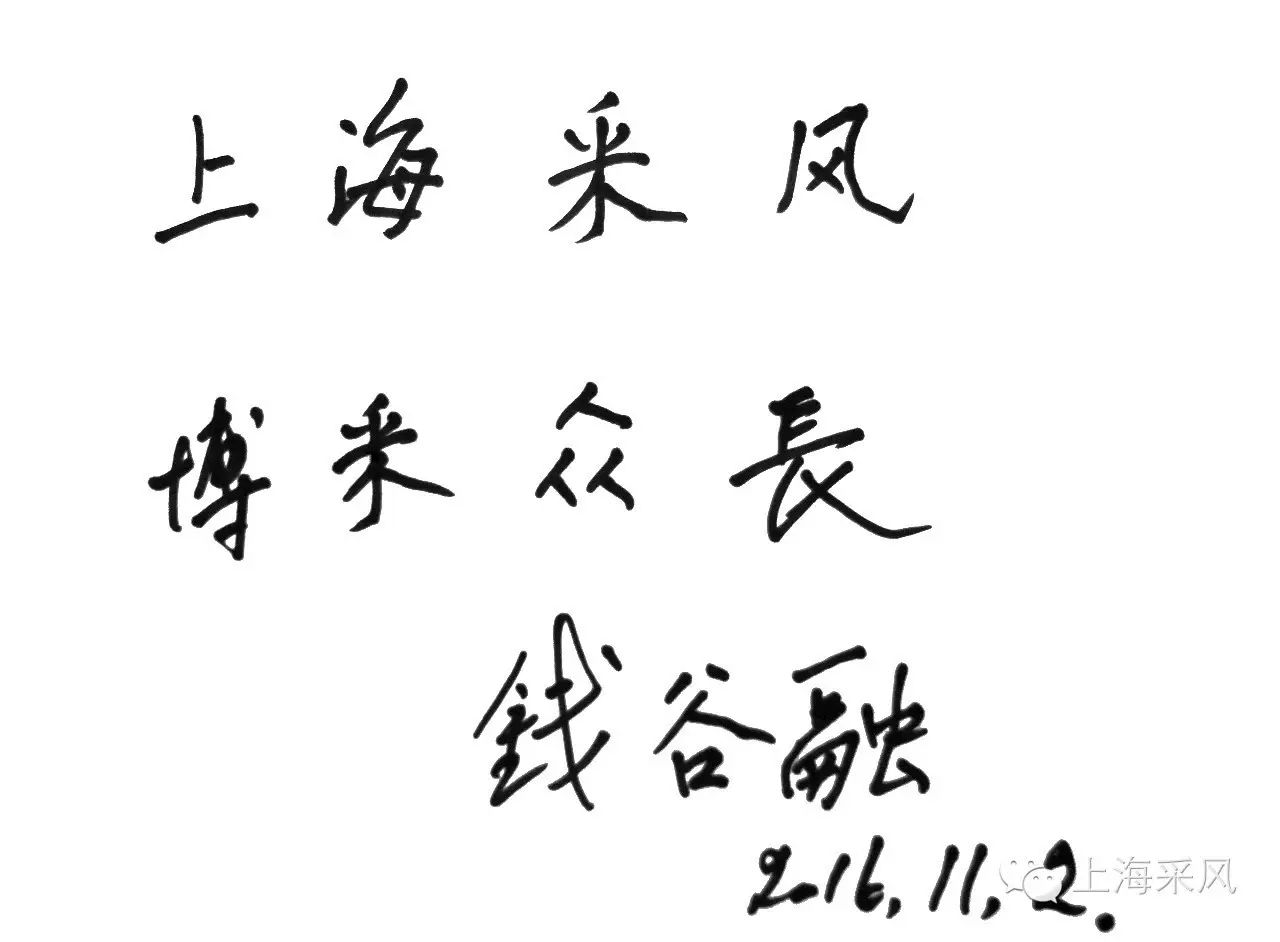 上海采风
博采众長
錢谷融
2016.11.2.
上海采风